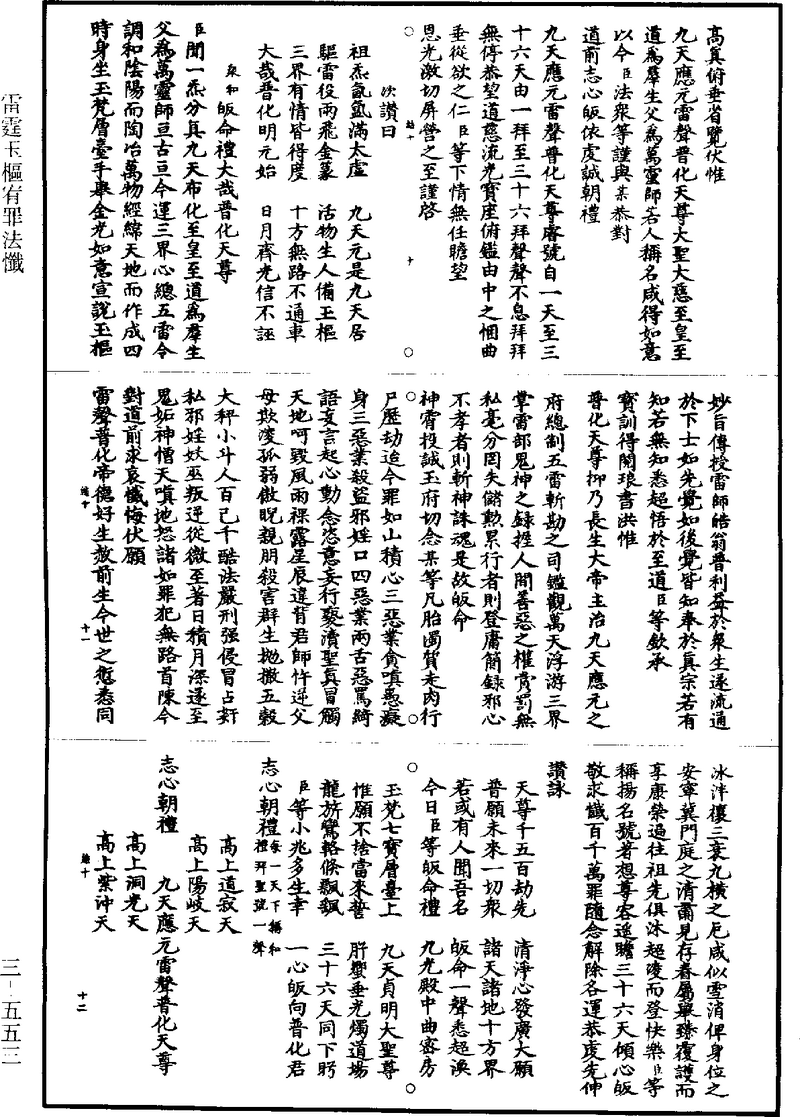 雷霆玉樞宥罪法懺
高真俯垂省覽伏惟
九天應元雷聲普化天尊大聖大慈至皇至
道為羣生父為萬靈師若人稱名咸得如意
以今臣法衆等謹與某恭對
道前志心皈依虔誠朝禮
九天應元雷聲普化天尊睿號自一天至三
十六天由一拜至三十六拜聲聲不息拜拜
無停恭望道慈流光寶座俯鑑由中之悃曲
垂從欲之仁臣等下情無任瞻望
恩光激切屏營之至謹啓
次讚曰
祖炁氤氳滿太虛 九天元是九天居
驅雷役雨飛金篆 活物生人備玉樞
三界有情皆得度 十方無路不通車
大哉普化明元始 日月齊光信不誣
衆和皈命禮大哉普化天尊
臣聞一炁分真九天布化至皇至道為羣生
父為萬靈師亘古亘今運三界心總五雷令
調和陰陽而陶冶萬物經綿天地而作成四
時身坐玉梵層臺手舉金光如意宣說玉樞
妙旨傳授雷師皓翁普利益於衆生遂流通
於下士如先覺如後覺皆知奉於真宗若有
知若無知悉超悟於至道臣等欽承
寶訓得閱琅書洪惟
普化天尊抑乃長生大帝主治九天應元之
府總制五雷斬勘之司鑑觀萬天浮游三界
掌雷部鬼神之錄握人間善惡之權賞罰無
私毫分罔失儲勲累行者則登庸簡錄邪心
不孝者則斬神誅魂是故皈命
神霄投誠玉府切念某等凡胎濁質走肉行
尸歷劫迨今罪如山積心三惡業貪嗔愚癡
身三惡業殺盜邪婬口四惡業兩舌惡罵綺
語妄言起心動念恣意妄行褻瀆聖真冒觸
天地呵毀風雨裸露星辰違背君師忤逆父
母欺凌孤弱傲睨親朋殺害群生抛撒五穀
大秤小斗人百己千酷法嚴刑强侵冒占奸
私邪婬妖巫叛逆從微至著日積月深遂至
鬼妬神憎天嗔地怒諸如罪犯無路首陳今
對道前求哀懺悔伏願
雷聲普化帝德好生赦前生今世之愆悉同
冰泮禳三衰九橫之厄咸似雪消俾身位之
安寧冀門庭之清肅見存眷屬舉臻覆護而
享康榮過往祖先俱沐超凌而登快樂臣等
稱揚名號著想尊容遥瞻三十六天傾心皈
敬求懺百千萬罪隨念解除各運恭虔先伸
讚詠
天尊千五百劫先 清淨心發廣大願
普願未來一切衆 諸天諸地十方界
若或有人聞吾名 皈命一聲悉超渙
今日臣等皈命禮 九光殿中曲密房
玉梵七寶層臺上 九天貞明大聖尊
惟願不捨當來誓 肝蠁垂光燭道場
龍旂鸞輅倏飄飄 三十六天同下盻
臣等小兆多生幸 一心皈向普化君
志心朝禮每一天下稱和禮拜聖號一聲
高上道寂天
高上陽岐天
志心朝禮 九天應元雷聲普化天尊
高上洞光天
高上紫沖天
三-五五三